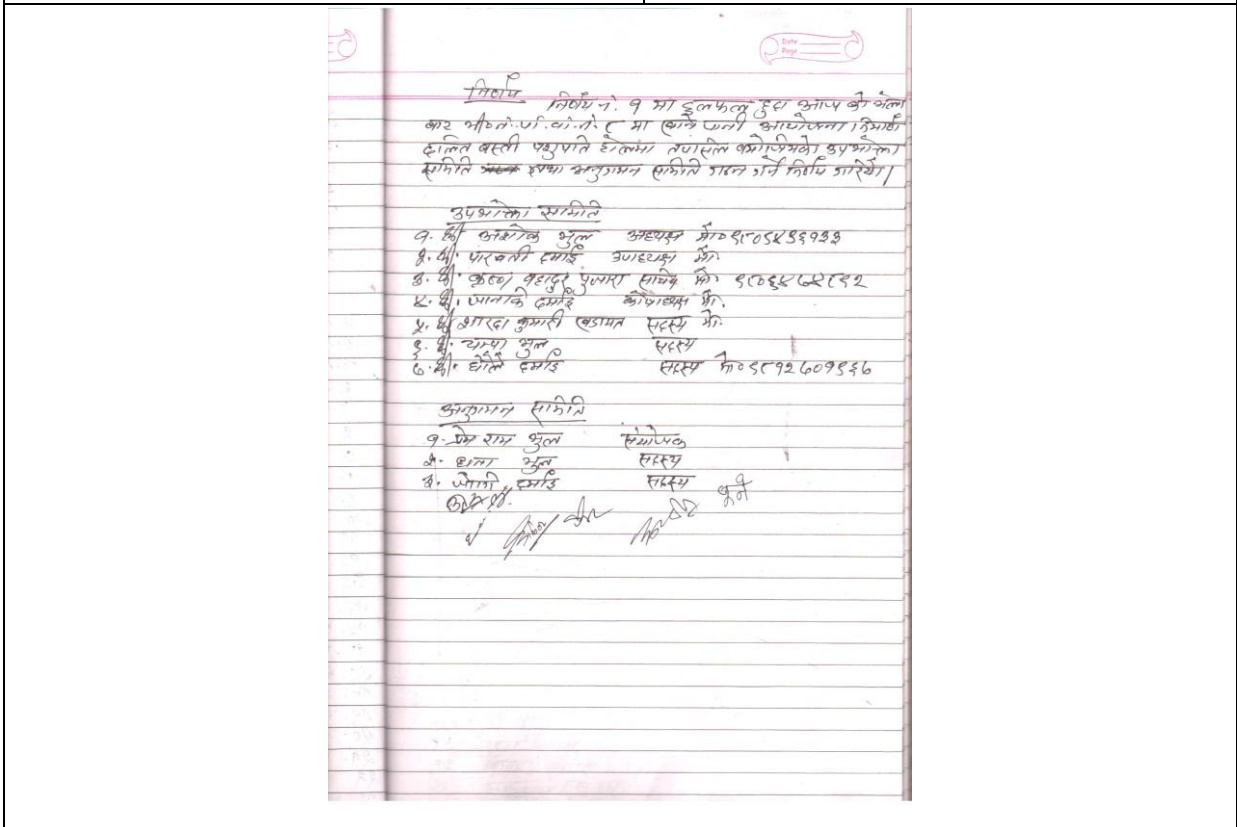 Date
Page
निर्णय
निर्णय नं. १ मा छलफल हुदा आज को भेला
बाट भी०न.पा.वा.नं. ८ मा खाने पानी आयोजना निर्माण
दलित बस्ती पशुपति टोलमा तपसिल बमोजिमको उपभोक्ता
समिति तथा अनुगमन समिति गठन गर्ने निर्णय गरियो।
उपभोक्ता समिति
१. श्री अशोक भुल अध्यक्ष मो०
२. श्री. पारवती दमाई उपाध्यक्ष मो.
३. श्री. कृष्ण बहादुर पुजारा सचिव मो.
४. श्री. जानकी दमाई कोषाध्यक्ष मो.
५. श्री शारदा कुमारी खडायत सदस्य मो.
६. श्री. चम्पा भुल सदस्य
७. श्री. धौले दमाई सदस्य मो०
अनुगमन समिति
१. प्रेम राम भुल संयोजक
२. धना भुल सदस्य
३. जोकी दमाई सदस्य